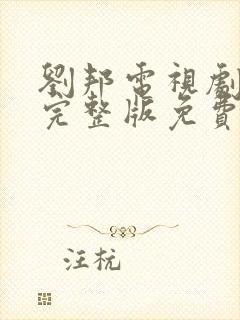 劉邦電視劇
完整版免費
汪杭